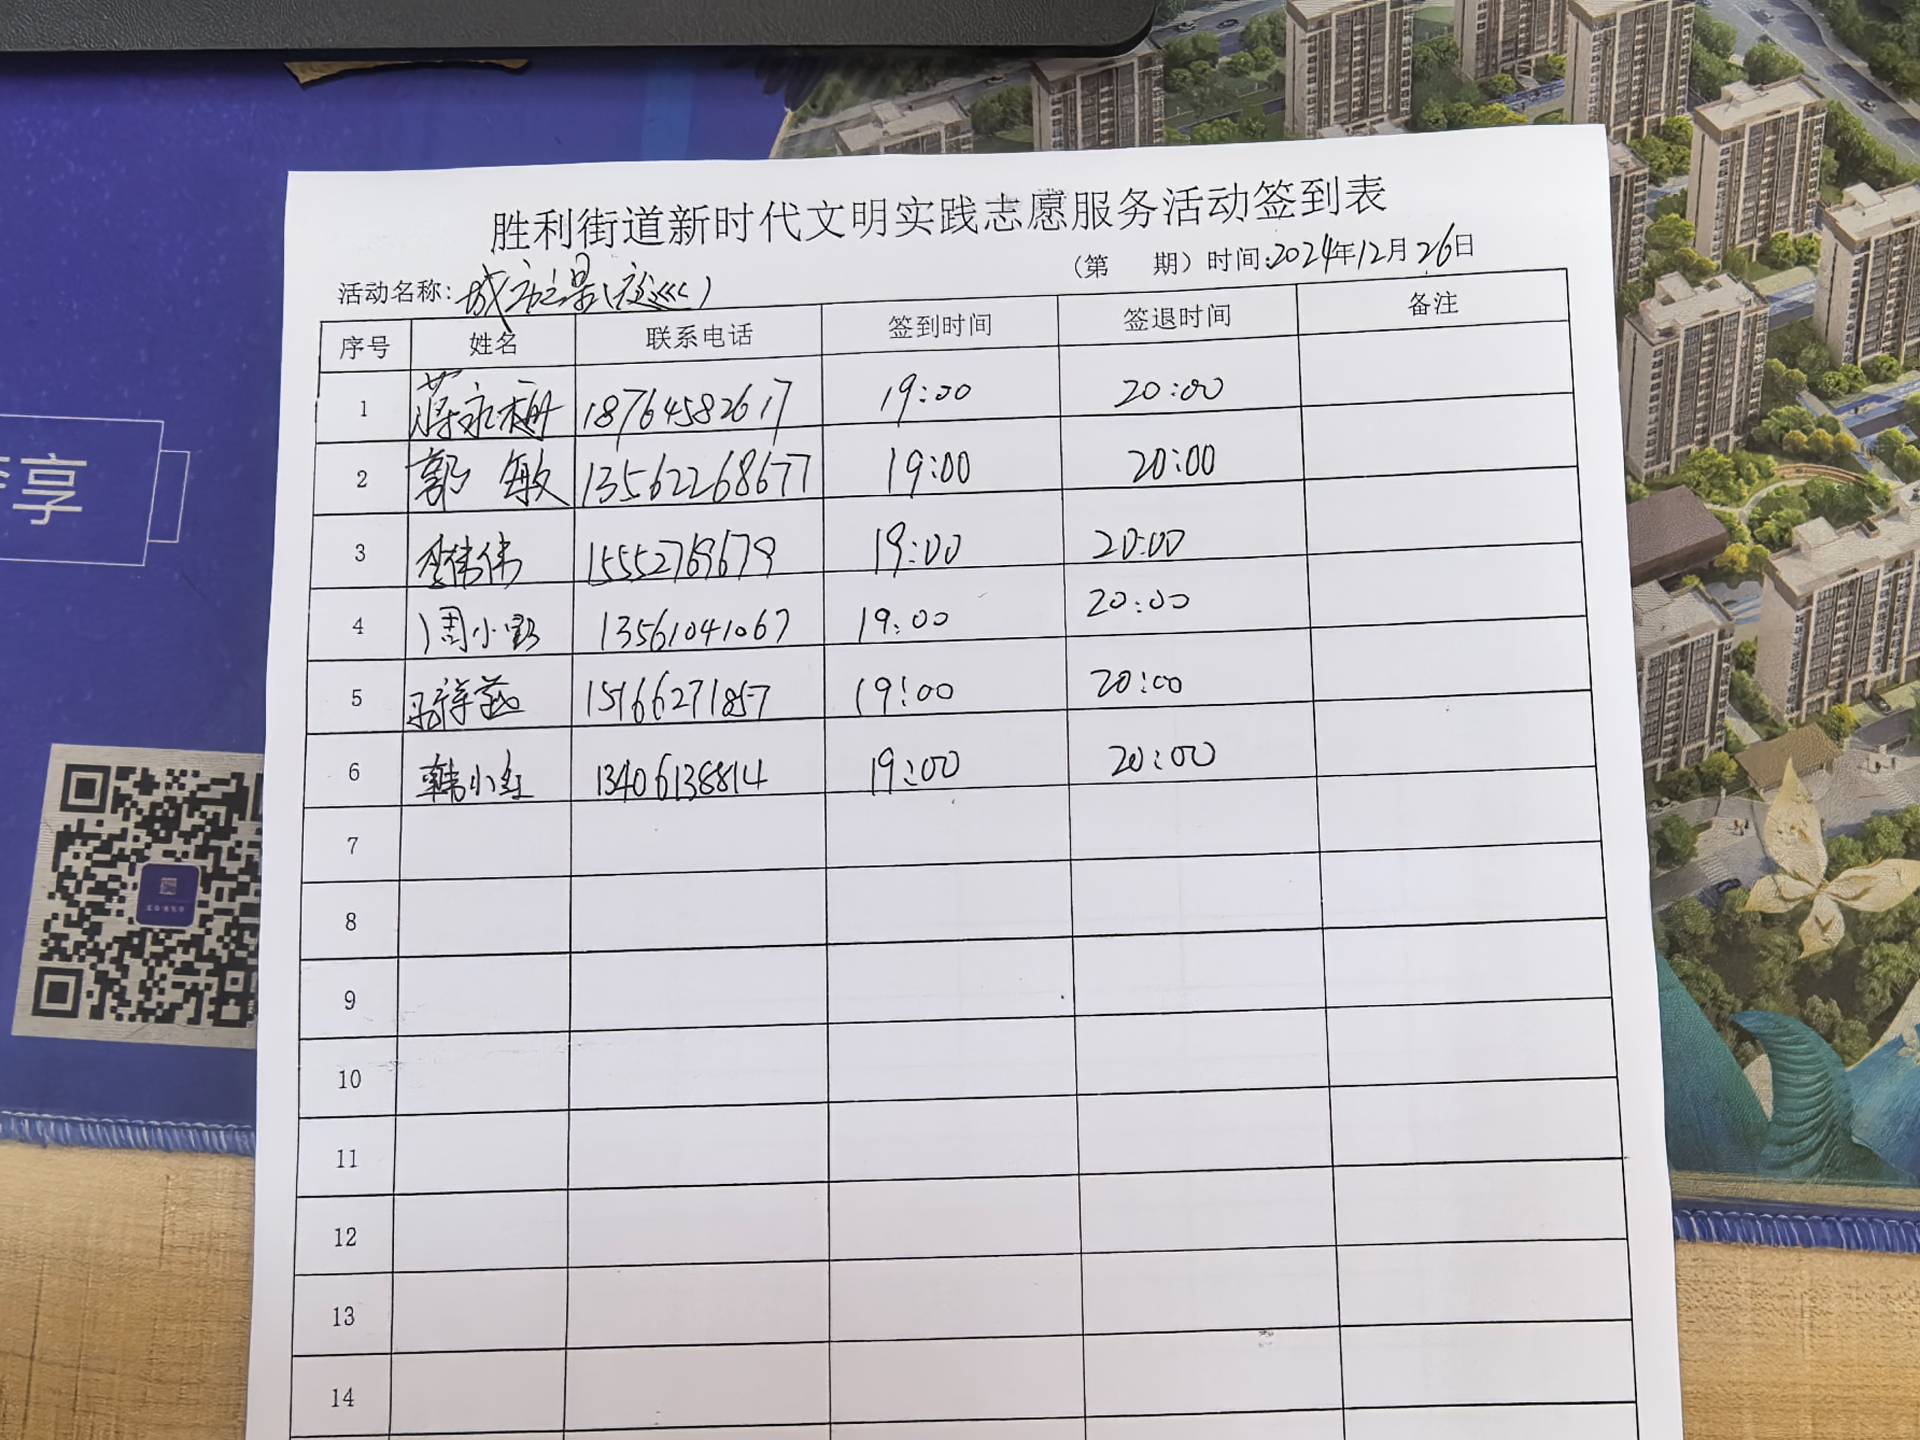 胜利街道新时代文明实践志愿服务活动签到表
(第 期) 时间:2024年12月26日
活动名称:城市之
序号 姓名 联系电话 签到时间 签退时间 备注
1 蒋永 18764582617 19:00 20:00
2 郭敏 13562268677 19:00 20:00
3 李伟伟 15552769679 19:00 20:00
4 周小 13561041067 19:00 20:00
5 15166271857 19:00 20:00
6 韩小红 13406138814 19:00 20:00
7
8
9
10
11
12
13
14
享